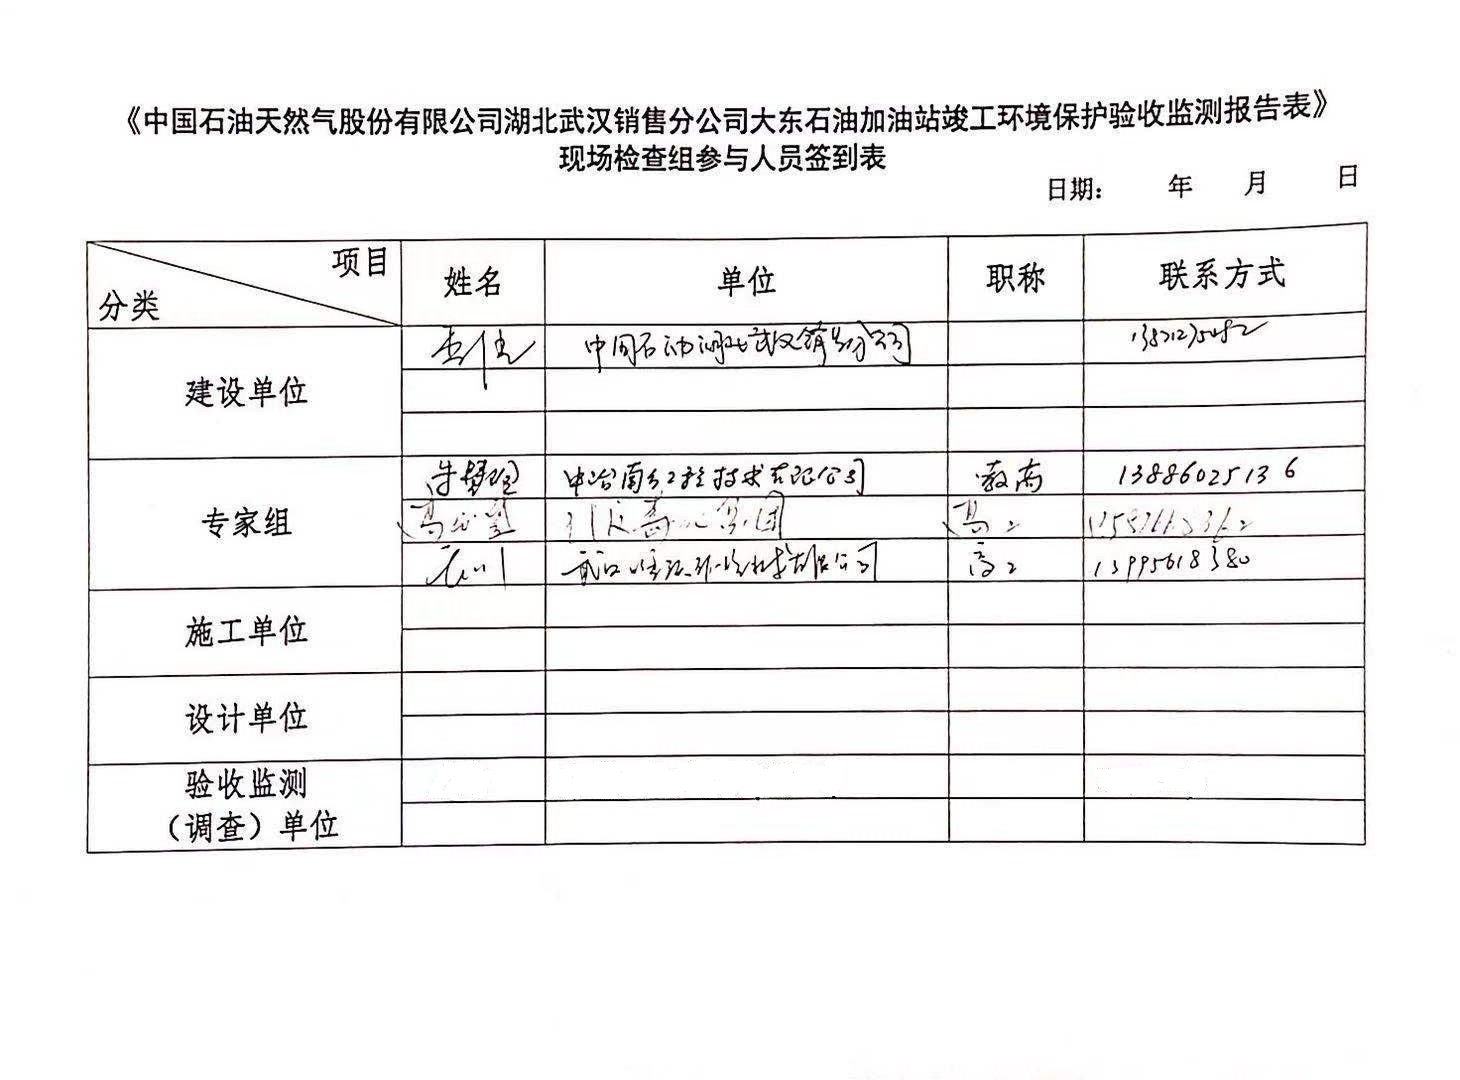 《中国石油天然气股份有限公司湖北武汉销售分公司大东石油加油站竣工环境保护验收监测报告表》
现场检查组参与人员签到表
日期： 年 月 日
项目
分类 姓名 单位 职称 联系方式
中国石油湖北武汉销售分公司
建设单位
中冶南方工程技术有限公司 教高 13886025136
专家组 高工
有限公司 高工 13995618380
施工单位
设计单位
验收监测
（调查）单位